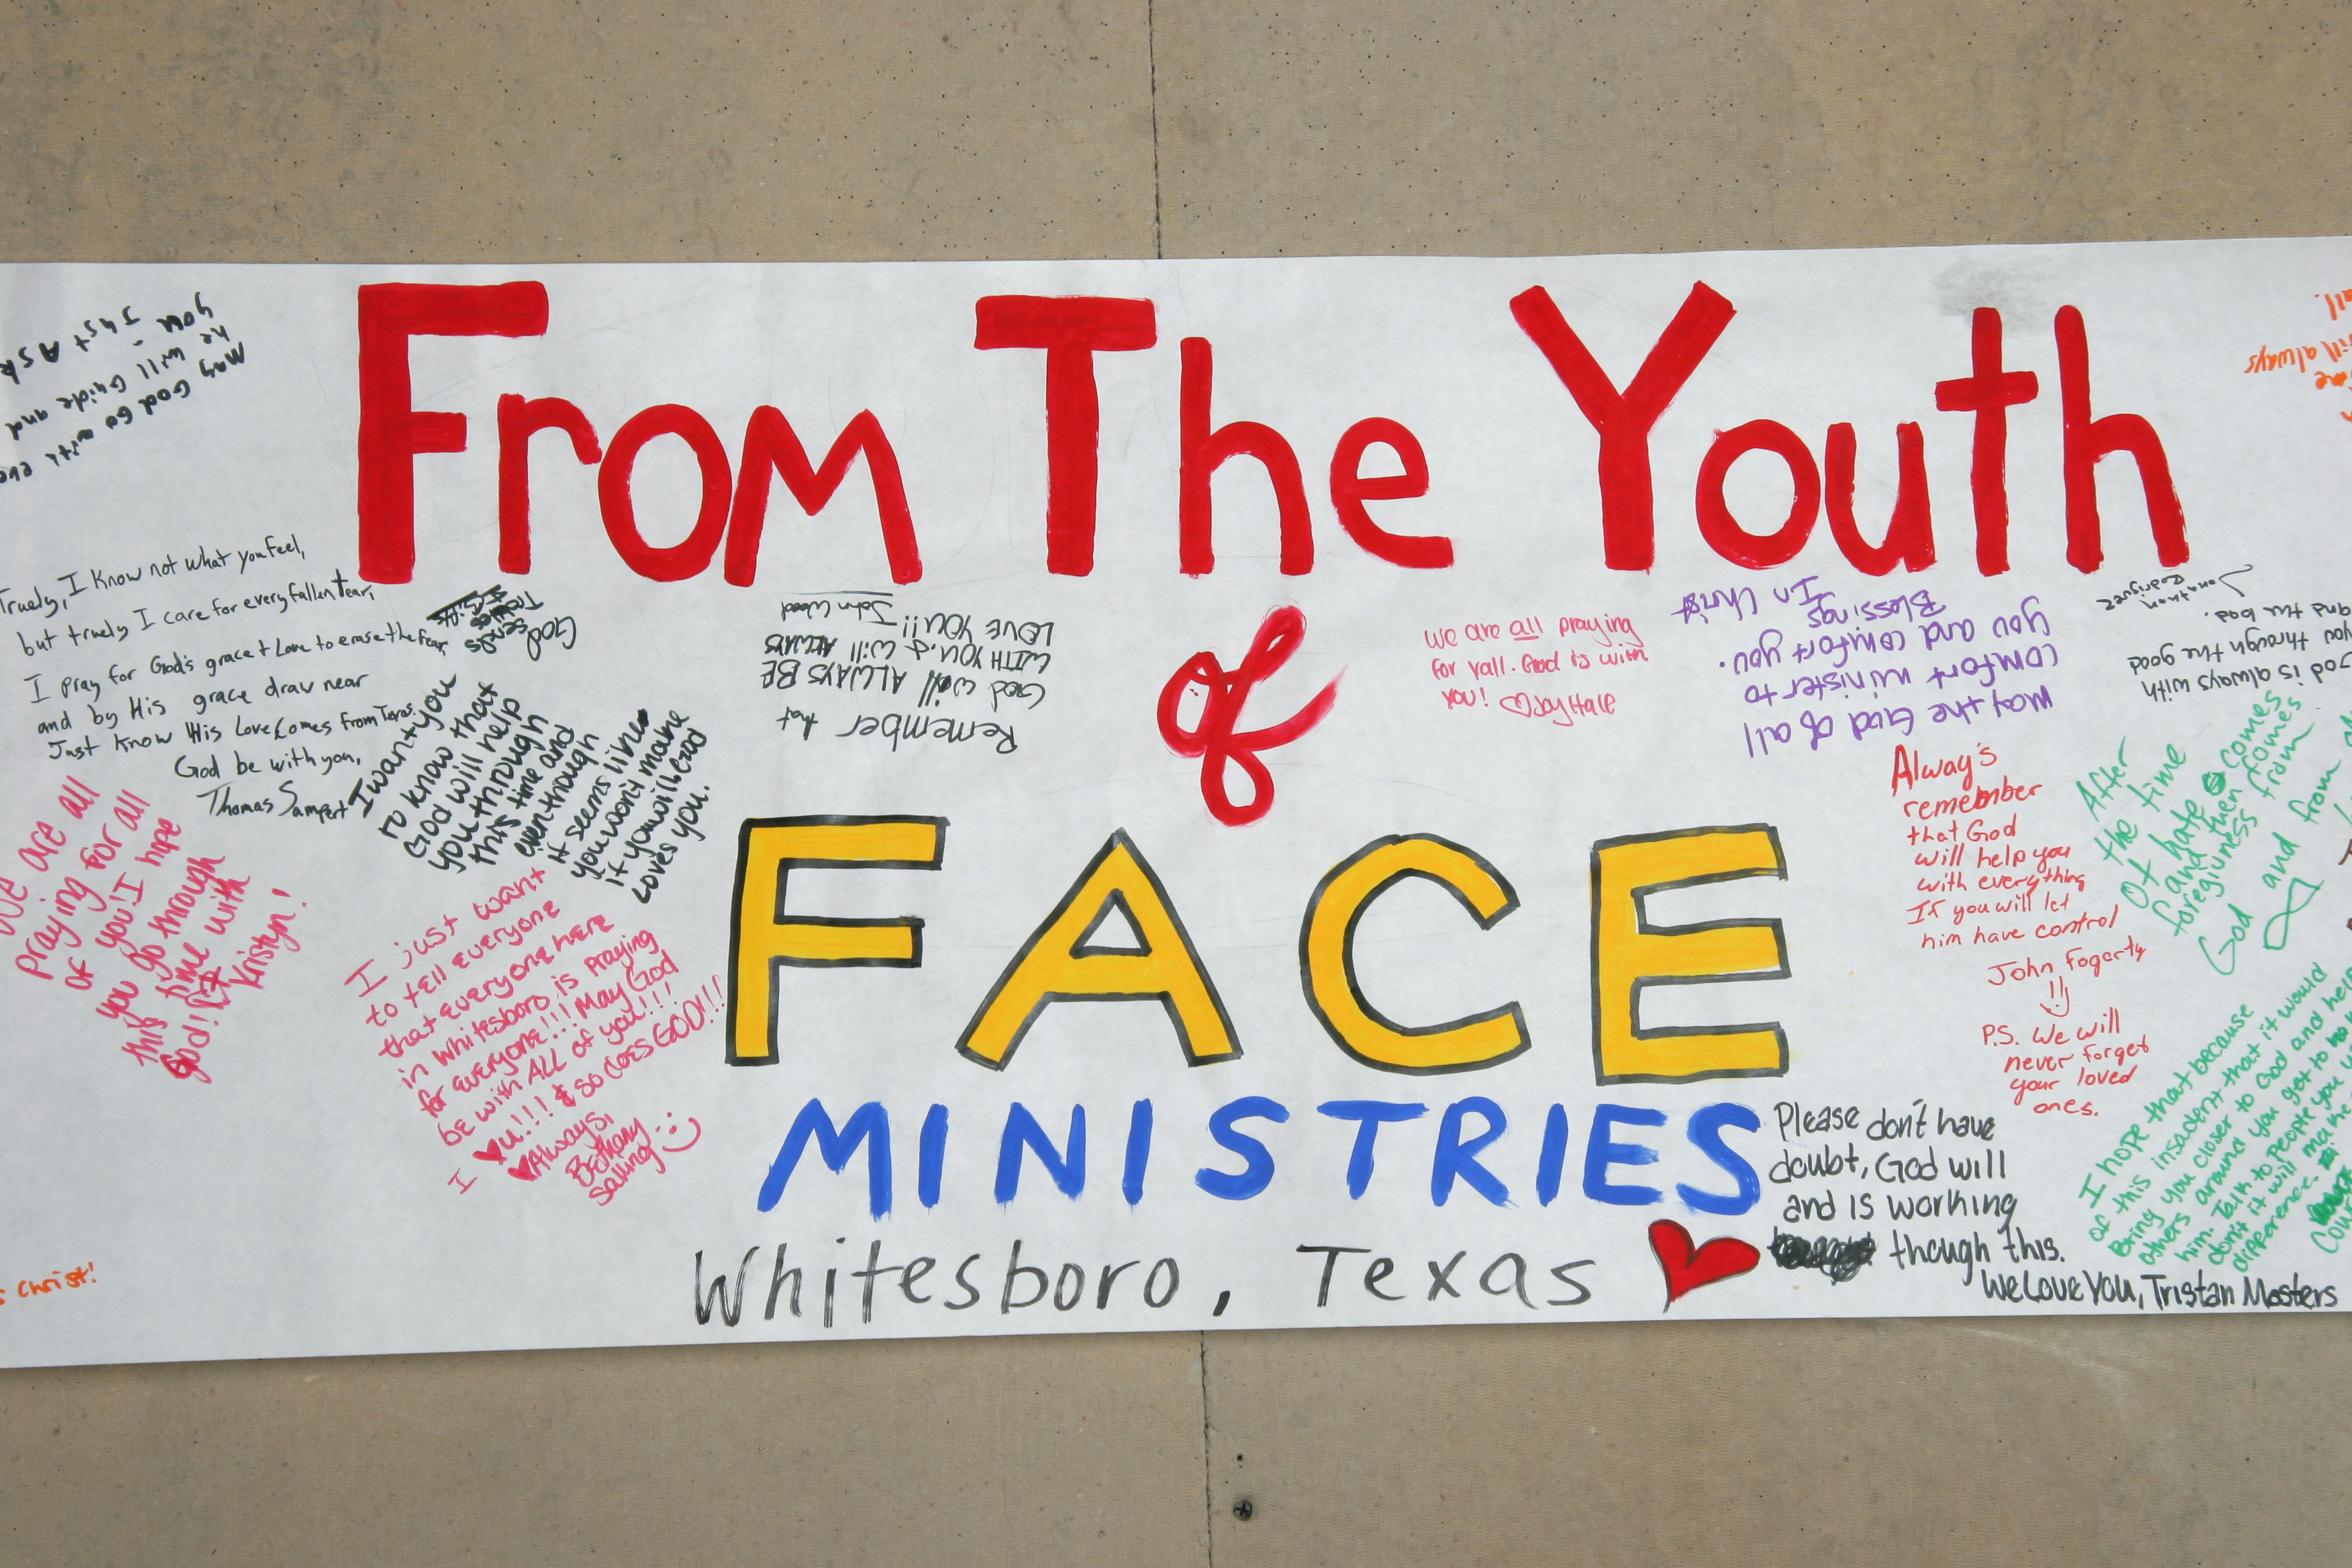 From The Youth
of
FACE
MINISTRIES
Whitesboro, Texas
May God Go with
he will Guide and
you - Just Ask
Truely, I Know not what you feel,
but truely I care for every fallen tear,
I pray for God's grace + Love to erase the fear,
and by His grace draw near
Just know His Love Comes from Texas.
God be with you,
Thomas Sampert
God
sends
I want you
to know that
God will help
you through
this time and
even though
it seems like
you won't make
it you will God
Loves you.
are all
praying for all
of you! I hope
you go through
this time with
God!
Kristyn!
I just want
to tell everyone
that everyone here
in Whitesboro is praying
for everyone!!! May God
be with ALL of you!!!
I ♥ u!!! & so does GOD!!!
♥ Always,
Bethany
Salling :)
Christ!
Remember that
God will ALWAYS BE
WITH YOU, & will ALWAYS
LOVE YOU!!
John Wood
we are all praying
for yall. God is with
you! ♡ Joy Hale
May the God of all
comfort minister to
you and comfort you.
Blessings
In Christ
God is always with
you through the good
and the bad.
Jonathan
Rodriguez
will always
all!
Always
remember
that God
will help you
with everything
If you will let
him have control
John Fogerty
!!
P.S. We will
never forget
your loved
ones.
After
the time
of hate comes
and then comes
foregivness from
God and from
I hope that because
of this insadent that it would
Bring you closer to God and help
others around you get to
him. Talk to People you
don't it will make
difference.
Please don't have
doubt, God will
and is working
though this.
We Love You, Tristan Masters